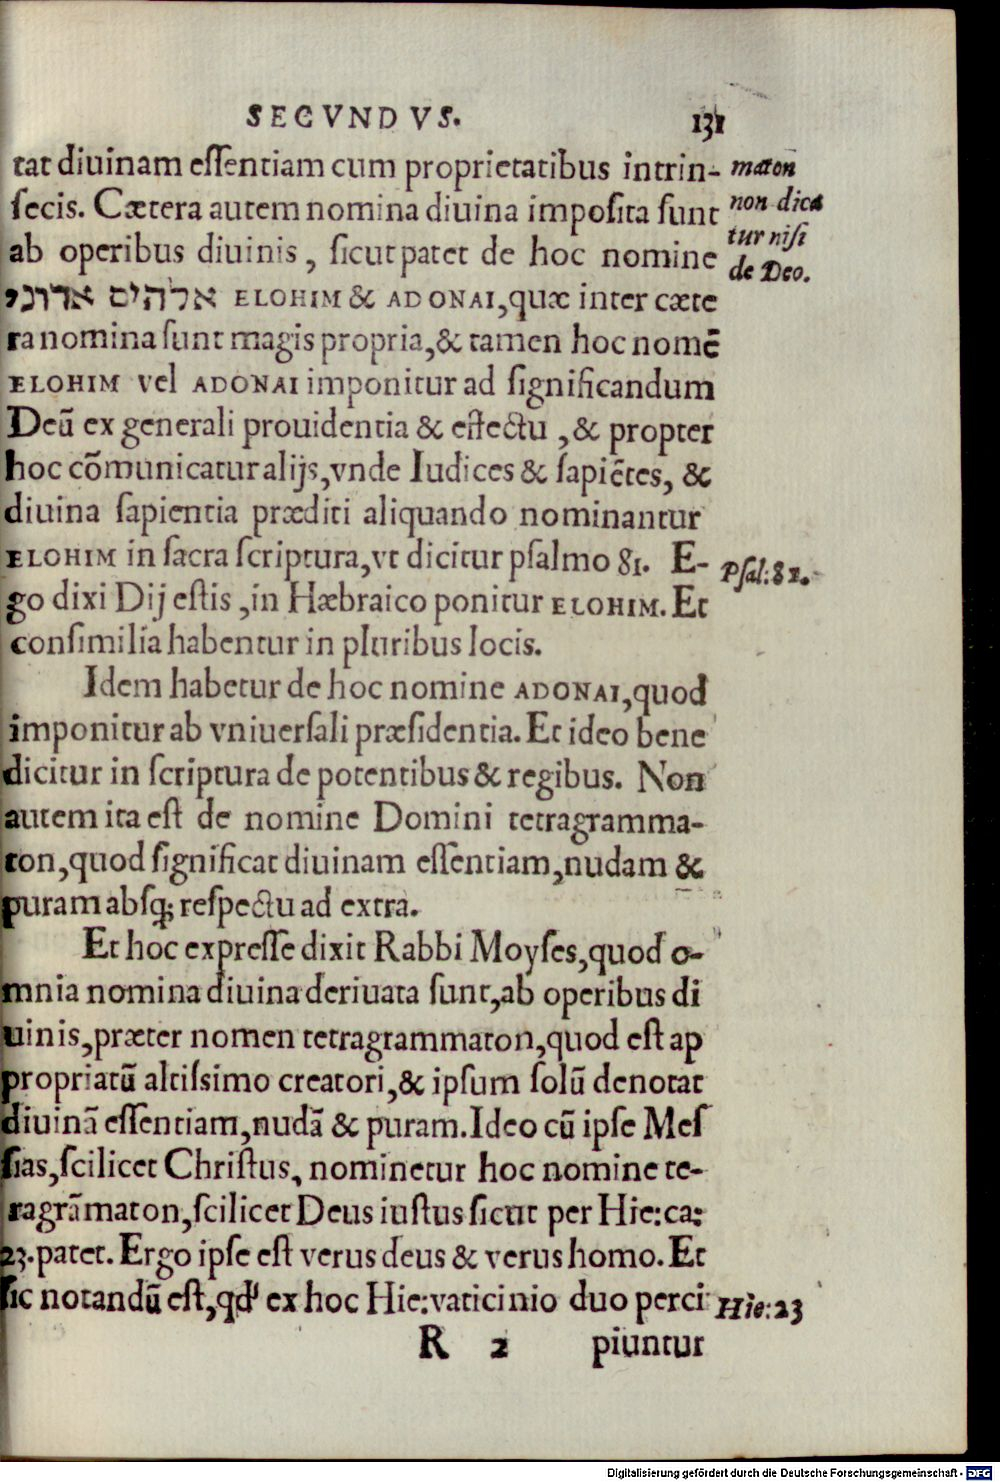 SECVNDVS. 131
tat diuinam essentiam cum proprietatibus intrin-
secis. Cætera autem nomina diuina imposita sunt
ab operibus diuinis, sicut patet de hoc nomine
אלהים אדוני ELOHIM & ADONAI, quæ inter cæte
ra nomina sunt magis propria, & tamen hoc nomē
ELOHIM vel ADONAI imponitur ad significandum
Deū ex generali prouidentia & effectu, & propter
hoc cōmunicatur alijs, vnde Iudices & sapiētes, &
diuina sapientia præditi aliquando nominantur
ELOHIM in sacra scriptura, vt dicitur psalmo 81. E-
go dixi Dij estis, in Hæbraico ponitur ELOHIM. Et
consimilia habentur in pluribus locis.
Idem habetur de hoc nomine ADONAI, quod
imponitur ab vniuersali præsidentia. Et ideo bene
dicitur in scriptura de potentibus & regibus. Non
autem ita est de nomine Domini tetragramma-
ton, quod significat diuinam essentiam, nudam &
puram absq; respectu ad extra.
Et hoc expresse dixit Rabbi Moyses, quod o-
mnia nomina diuina deriuata sunt, ab operibus di
uinis, præter nomen tetragrammaton, quod est ap
propriatū altissimo creatori, & ipsum solū denotat
diuinā essentiam, nudā & puram. Ideo cū ipse Mes
sias, scilicet Christus, nominetur hoc nomine te-
ragrāmaton, scilicet Deus iustus sicut per Hie: ca:
23. patet. Ergo ipse est verus deus & verus homo. Et
sic notandū est, qd' ex hoc Hie: vaticinio duo perci
R 2 piuntur
maton
non dica
tur nisi
de Deo.
Psal: 82.
Hie: 23
Digitalisierung gefördert durch die Deutsche Forschungsgemeinschaft - DFG